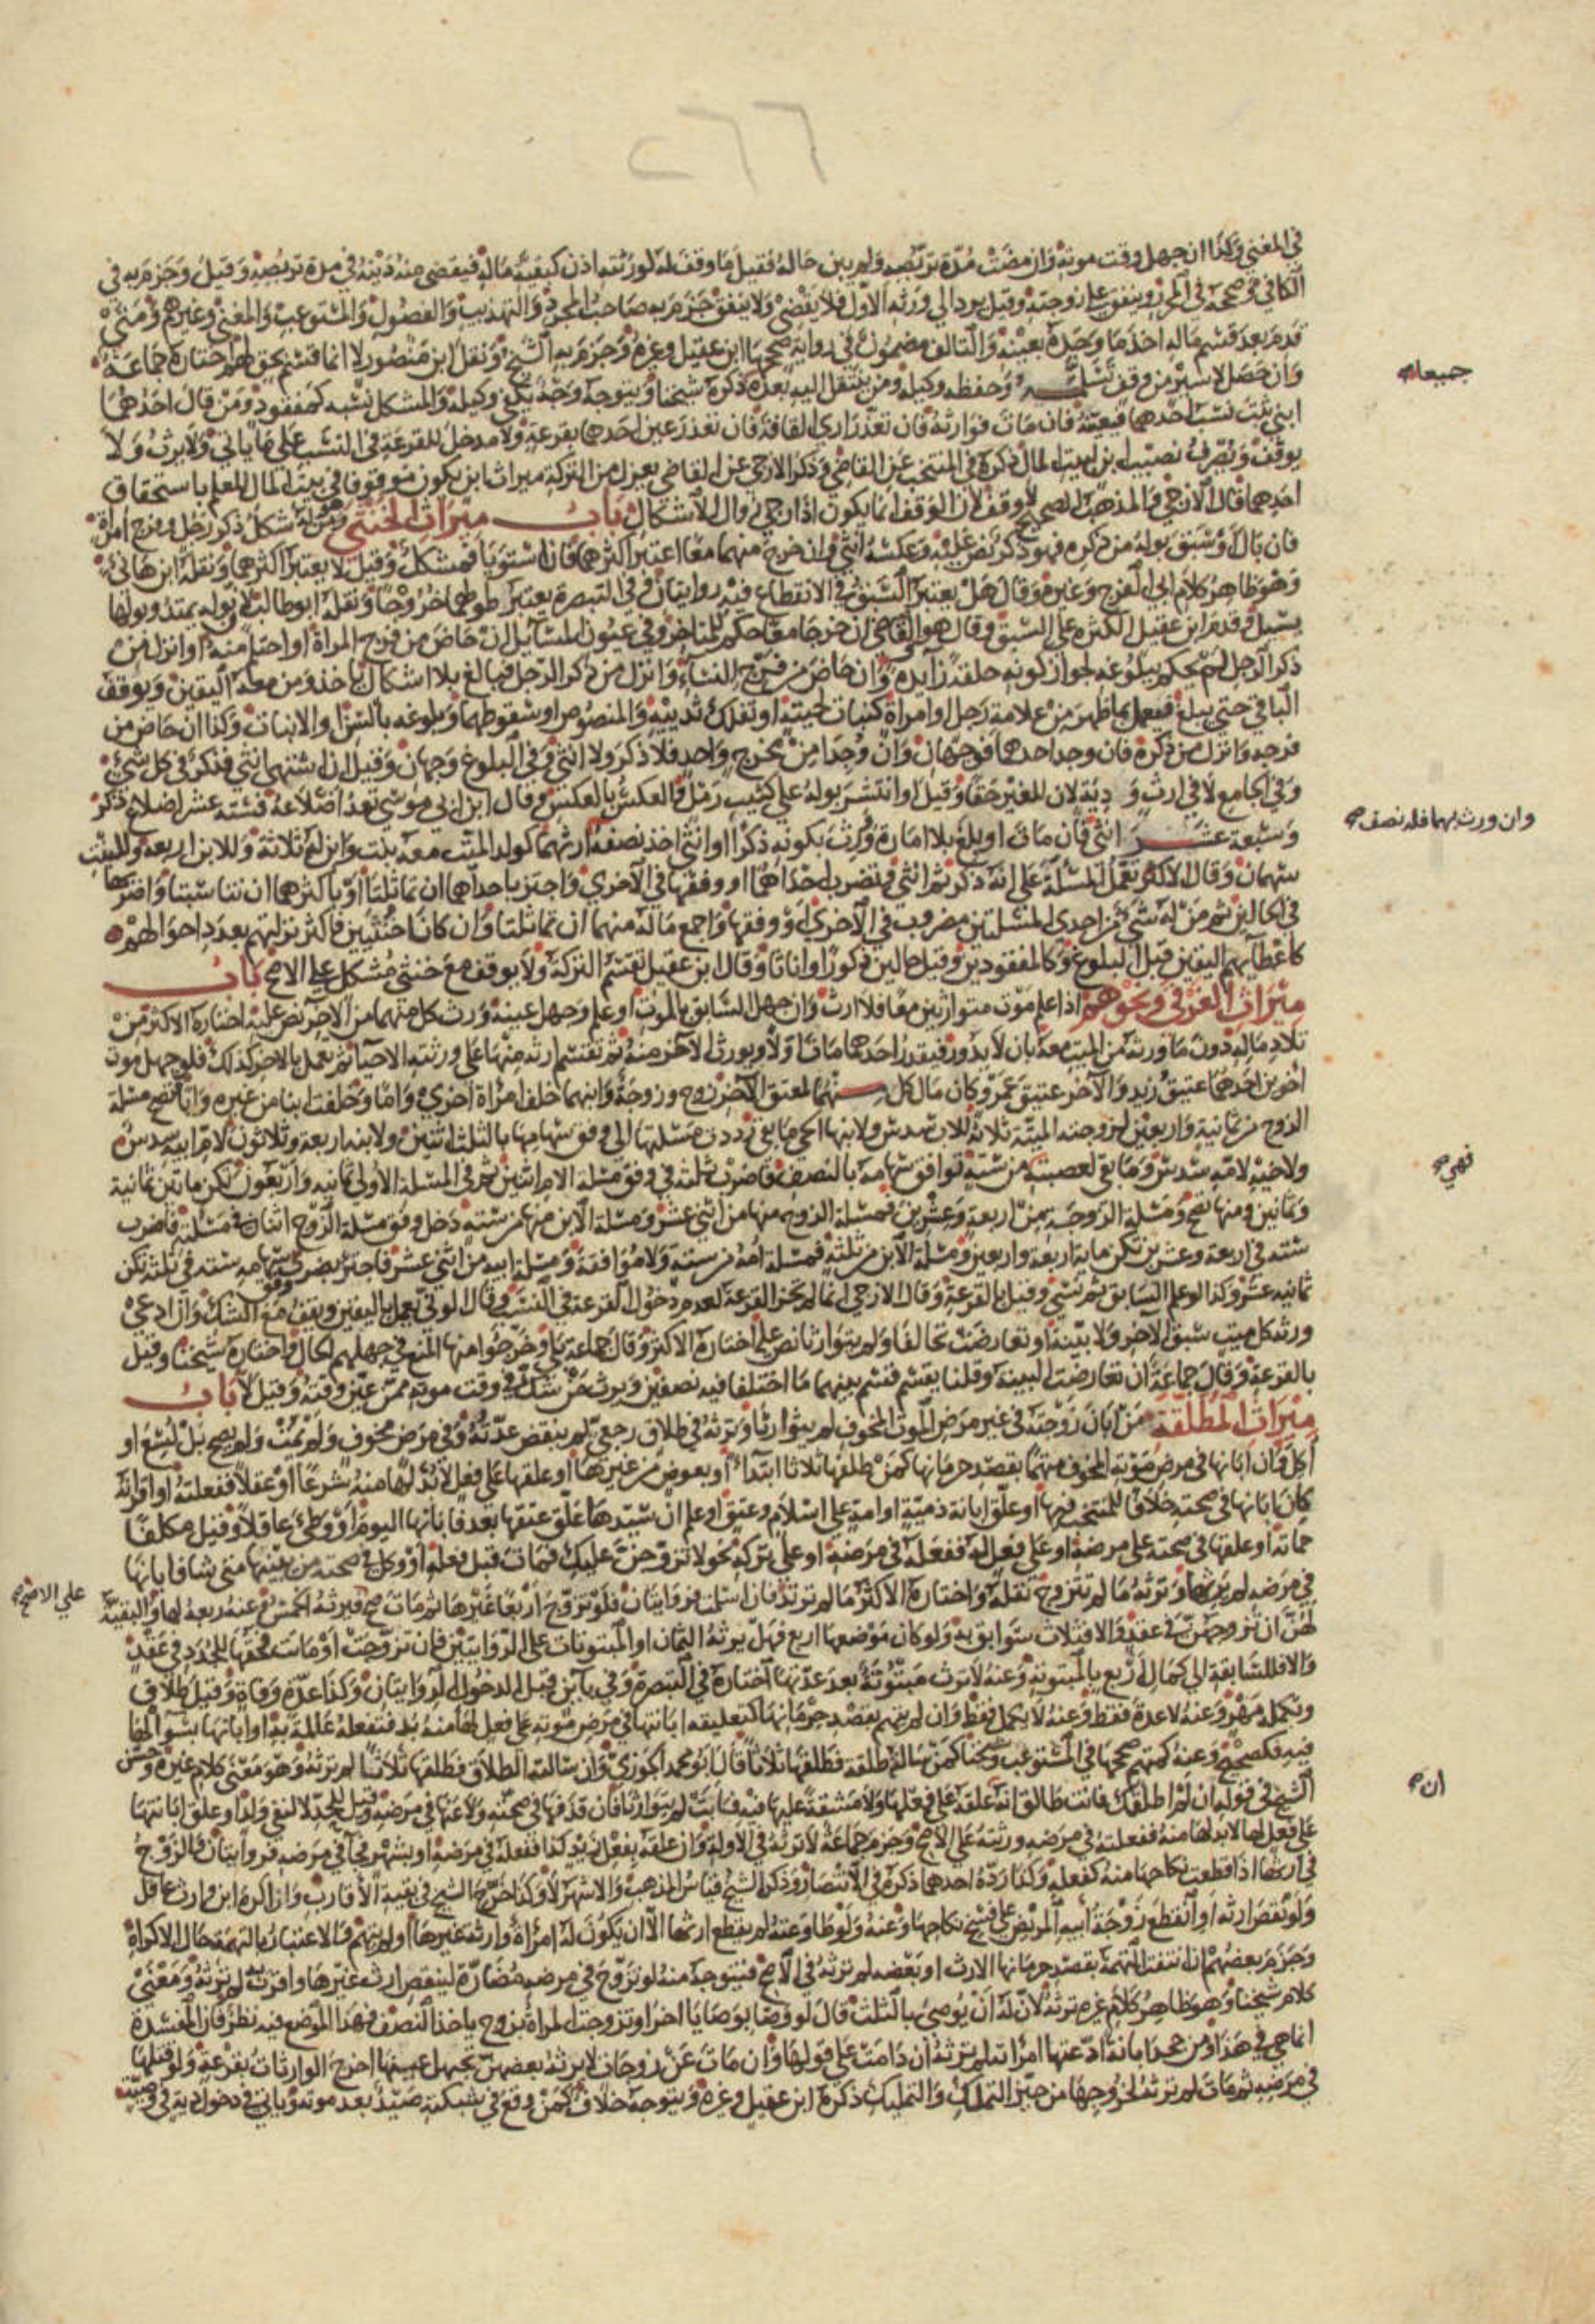 ٢٦٦
في المغني وكذا ان جهل وقت موته وان مضت مدة تربصه ولم يبن حاله فقيل ما وقف له لورثته اذن كبقية ماله فيقضى منه دينه في مدة تربصه وقيل وجزم به في
الكافي وصححه في المحرر وينفق على زوجته وقيل يرد الي ورثة الاول فلا يقضى ولا ينفق جزم به صاحب المجرد والتهذيب والفصول والمستوعب والمغني وغيرهم ومتى
قدم بعد قسم ماله اخذ ما وجده بعينه والتالف مضمون في رواية صححها ابن عقيل وغيره وجزم به الشيخ ونقل ابن منصور لا انما قسم بحق لهم اختاره جماعة
وان حصل لاسير من وقف تسلمه وحفظه وكيله ومن ينتقل اليه بعده ذكره شيخنا ويتوجه وجه يكفي وكيله والمشكل نسبه كمفقود ومن قال احدهما
ابني ثبت نسب احدهما فيعينه فان مات فوارثه فان تعذر اري القافة فان تعذر عين احدهما بقرعة ولا مدخل للقرعة في النسب على ما ياتي ولا يرث ولا
يوقف ويصرف نصيب ابن لبيت المال ذكره في المنتخب عن القاضي وذكر الازجي عن القاضي يعزل من التركة ميراث ابن يكون موقوفا في بيت المال للعلم باستحقاق
احدهما قال الازجي والمذهب الصحيح لا وقف لان الوقف انما يكون اذا رجي زوال الاشكال باب ميراث الخنثى وهو من له شكل ذكر رجل وفرج امراة
فان بال او سبق بوله من ذكره فهو ذكر نص عليه وعكسه انثى وان خرج منهما معا اعتبر اكثرهما فان استويا فمشكل وقيل لا يعتبر اكثرهما ونقله ابن هانئ
وهو ظاهر كلام ابي الفرج وغيره وقال هل يعتبر السبق في الانقطاع فيه روايتان وفي التبصرة يعتبر طولهما خروجا ونقله ابو طالب لان بوله يمتد وبولها
يسيل وقدم ابن عقيل الكثرة على السبق وقال هو والقاضي ان خرجا معا حكم للمتاخر وفي عيون المسائل ان حاض من فرج المراة او احتلم منه او انزل من
ذكر الرجل لم يحكم ببلوغه لجواز كونه خلقة زايدة وان حاض من فرج النساء وانزل من ذكر الرجل فبالغ بلا اشكال ياخذ ومن معه اليقين ويوقف
الباقي حتى يبلغ فيعمل بما ظهر من علامة رجل او امراة كنبات لحيته او تفلك ثدييه والمنصوص او سقوطهما وبلوغه بالسن والانبات وكذا ان حاض من
فرجه وانزل من ذكره فان وجد احدهما فوجهان وان وجدا من مخرج واحد فلا ذكر ولا انثى وفي البلوغ وجهان وقيل ان اشتهى انثى فذكر في كل شيء
وفي الجامع لا في ارث ودية لان للغير حقا وقيل او انتشر بوله على كثيب رمل والعكس بالعكس وقال ابن ابي موسى تعد اضلاعه فستة عشر اضلاع ذكر
وسبعة عشر انثى فان مات او بلغ بلا امارة وورث بكونه ذكرا او انثى اخذ نصفه ارثهما كولد الميت معه بنت وابن له ثلاثة وللابن اربعة وللبنت
سهمان وقال الاكثر تعمل المسئلة على انه ذكر ثم انثى وتضرب احداهما او وفقها في الاخرى واجتز باحداهما ان تماثلتا او باكثرهما ان تناسبتا واضربها
في الحالين ثم من له شي من احدى المسئلتين مضروب في الاخرى او وفقها واجمع ماله منهما ان تماثلتا وان كانا خنثيين فاكثر نزلتهم بعدد احوالهم
كاعطائهم اليقين قبل البلوغ وكالمفقودين وقيل حالين ذكورا واناثا وقال ابن عقيل تقسم التركة ولا يوقف مع خنثى مشكل على الاصح باب
ميراث الغرقى ونحوهم اذا علم موت متوارثين معا فلا ارث وان جهل السابق بالموت او علم وجهل عينه ورث كل منهما من الاخر نص عليه اختاره الاكثر من
تلاد ماله دون ما ورثه من الميت معه بان لا يدور فيقدر احدهما مات اولا ويورث الاخر منه ثم تقسم ارثه منها على ورثته الاحياء ثم يعمل بالاخر كذلك فلو جهل موت
اخوين احدهما عتيق زيد والاخر عتيق عمرو كان مال كل منهما لمعتق الاخر زوج وزوجة وابنهما خلف امراة اخرى واما وخلفت ابنا من غيره وابا فتصح مسئلة
الزوج من ثمانية واربعين لزوجته الميتة ثلاثة للاب سدس ولابنها الحي ما بقي رددت مسئلتها الى وفق سهامها بالثلث اثنين ولابنه اربعة وثلاثون لام ابيه سدس
ولاخيه لامه سدس وما بقي لعصبته من ستة توافق سهامه بالنصف فاضرب ثلثه في وفق مسئلة الام اثنين ثم في المسئلة الاولى ثمانية واربعون تكن مائتين ثمانية
وثمانين ومنها تصح ومسئلة الزوجة من اربعة وعشرين فمسئلة الزوج منها من اثني عشر ومسئلة الابن منها من ستة دخل وفق مسئلة الزوج اثنان في مسئلته فاضرب
ستة في اربعة وعشرين تكن ماية اربعة واربعين ومسئلة الابن من ثلثة فمسئلة امه من ستة ولا موافقة ومسئلة ابيه من اثني عشر فاجتز بضرب وفق سهامه ستة في ثلثة تكن
ثمانية عشر وكذا لو علم السابق ثم نسي وقيل بالقرعة وقال الازجي انما لم تجز القرعة لعدم دخول القرعة في النسب وقال الوني يعمل باليقين ويقف مع الشك وان ادعى
ورثة كل ميت سبق الاخر ولا بينة او تعارضت تحالفا ولم يتوارثا نص عليه اختاره الاكثر وقال جماعة بلى وخرجوا منها المنع في جهلهم الحال واختاره شيخنا وقيل
بالقرعة وقال جماعة ان تعارضت البينة وقلنا يقسم قسم بينهما ما اختلفا فيه نصفين ويرث من شك في وقت موته ممن عين وقته وقيل لا باب
ميراث المطلقة من ابان زوجته في غير مرض الموت المخوف لم يتوارثا وترثه في طلاق رجعي لم ينقض عدته وفي مرض مخوف ولم يمت ولم يصح بل لسع او
اكل وان ابانها في مرض موته المخوف متهما بقصد حرمانها كمن طلقها ثلاثا ابتداء او بعوض من غيرها او علقها على فعل لا بد لها منه شرعا او عقلا ففعلته او اقر انه
كان ابانها في صحته خلافا للمنتخب فيها او علق ابانة ذمية او امة على اسلام وعتق او علم ان سيدها علق عتقها بعد فابانها اليوم او وطئ عاقلا وقيل مكلفا
حماته او علقها في صحته على مرضه او على فعل له ففعله في مرضه او على تركه نحو لا تزوجن عليك فمات قبل فعله او وكل في صحته من يبينها متى شا فابانها
في مرضه لم يرثها وترثه ما لم تتزوج نقله واختاره الاكثر ما لم ترتد فان اسلمت فروايتان فلو تزوج اربعا غيرها ثم مات صح فيرثه الخمس وعنه ربعه لها والبقية
لهن ان تزوجهن في عقد والا فثلاث سوابق به ولو كان موضعها اربع فهل يرثه الثمان او المبتوتات على الروايتين فان تزوجت او ماتت فحقها للجدد في عقد
والا فللسابقة الى كمال اربع بالمبتوتة وعنه لا ترث مبتوتة بعد عدتها اختاره في التبصرة وفي باين قبل الدخول الروايتان وكذا عدة وفاة وقيل طلاق
وتكملة مهر وعنه لا عدة فقط وعنه لا يكمل فقط وان لم يتهم بقصد حرمانها كتعليقه ابانتها في مرض موته على فعل لها منه بد فتفعله عالمة به او ابانها بسوالها
فيه فكصحيح وعنه كمتهم صححها في المستوعب وشيخنا كمن سالته طلقة فطلقها ثلاثا قال ابو محمد الجوزي وان سالته الطلاق فطلقها ثلاثا لم ترثه وهو معنى كلام غيره وحسن
الشيخ في قوله ان لم اطلقك فانت طالق انه علقه على فعلها ولا مشقة عليها فيه فابت لم يتوارثا فان قذفها في صحته ولاعنها في مرضه وقيل للحد لا لنفي ولد او علق ابانتها
على فعل لها لا بد لها منه ففعلته في مرضه ورثته على الاصح وجزم جماعة لا ترثه في الاولة وان علقه بفعل زيد كذا ففعله في مرضه او بشهر فجا في مرضه فروايتان والزوج
في ارثها اذا قطعت نكاحها منه كفعله وكذا ردة احدهما ذكره في الانتصار وذكر الشيخ قياس المذهب والاشهر لا وكذا خرج الشيخ في بقية الاقارب وان اكره ابن وارث عاقل
ولو نقص ارثه او انقطع زوجة ابيه المريض على فسخ نكاحها وعنه ولو طاوعته لم يقطع ارثها الا ان يكون له امراة وارثة غيرها او لم يتهم والاعتبار بالتهمة حال الاكراه
وجزم بعضهم ان انتفت التهمة بقصد حرمانها الارث او بعضه لم ترثه في الاصح فيتوجه منه لو تزوج في مرضه مضارة لينقص ارث غيرها واقرت به لم ترثه ومعنى
كلام شيخنا وهو ظاهر كلام غيره ترثه لان له ان يوصي بالثلث قال لو وصا بوصايا اخر او تزوجت المراة بزوج ياخذ النصف فهذا الموضع فيه نظر فان المفسدة
انما هي في هذا ومن جحد ابانة ادعتها امراته لم ترثه ان دامت على قولها وان مات عن زوجات لا يرثه بعضهن تجهل عينها اخرج الوارثات بقرعة ولو قتلها
في مرضه ثم مات لم ترثه لخروجها من حيز التملك والتمليك ذكره ابن عقيل وغيره ويتوجه خلاف كمن وقع في شبكته صيد بعد موته وياتي في دخول دية في وصية
جميعا صح
وان ورث بهما فله نصف صح
فهي صح
على الاصح صح
ان صح